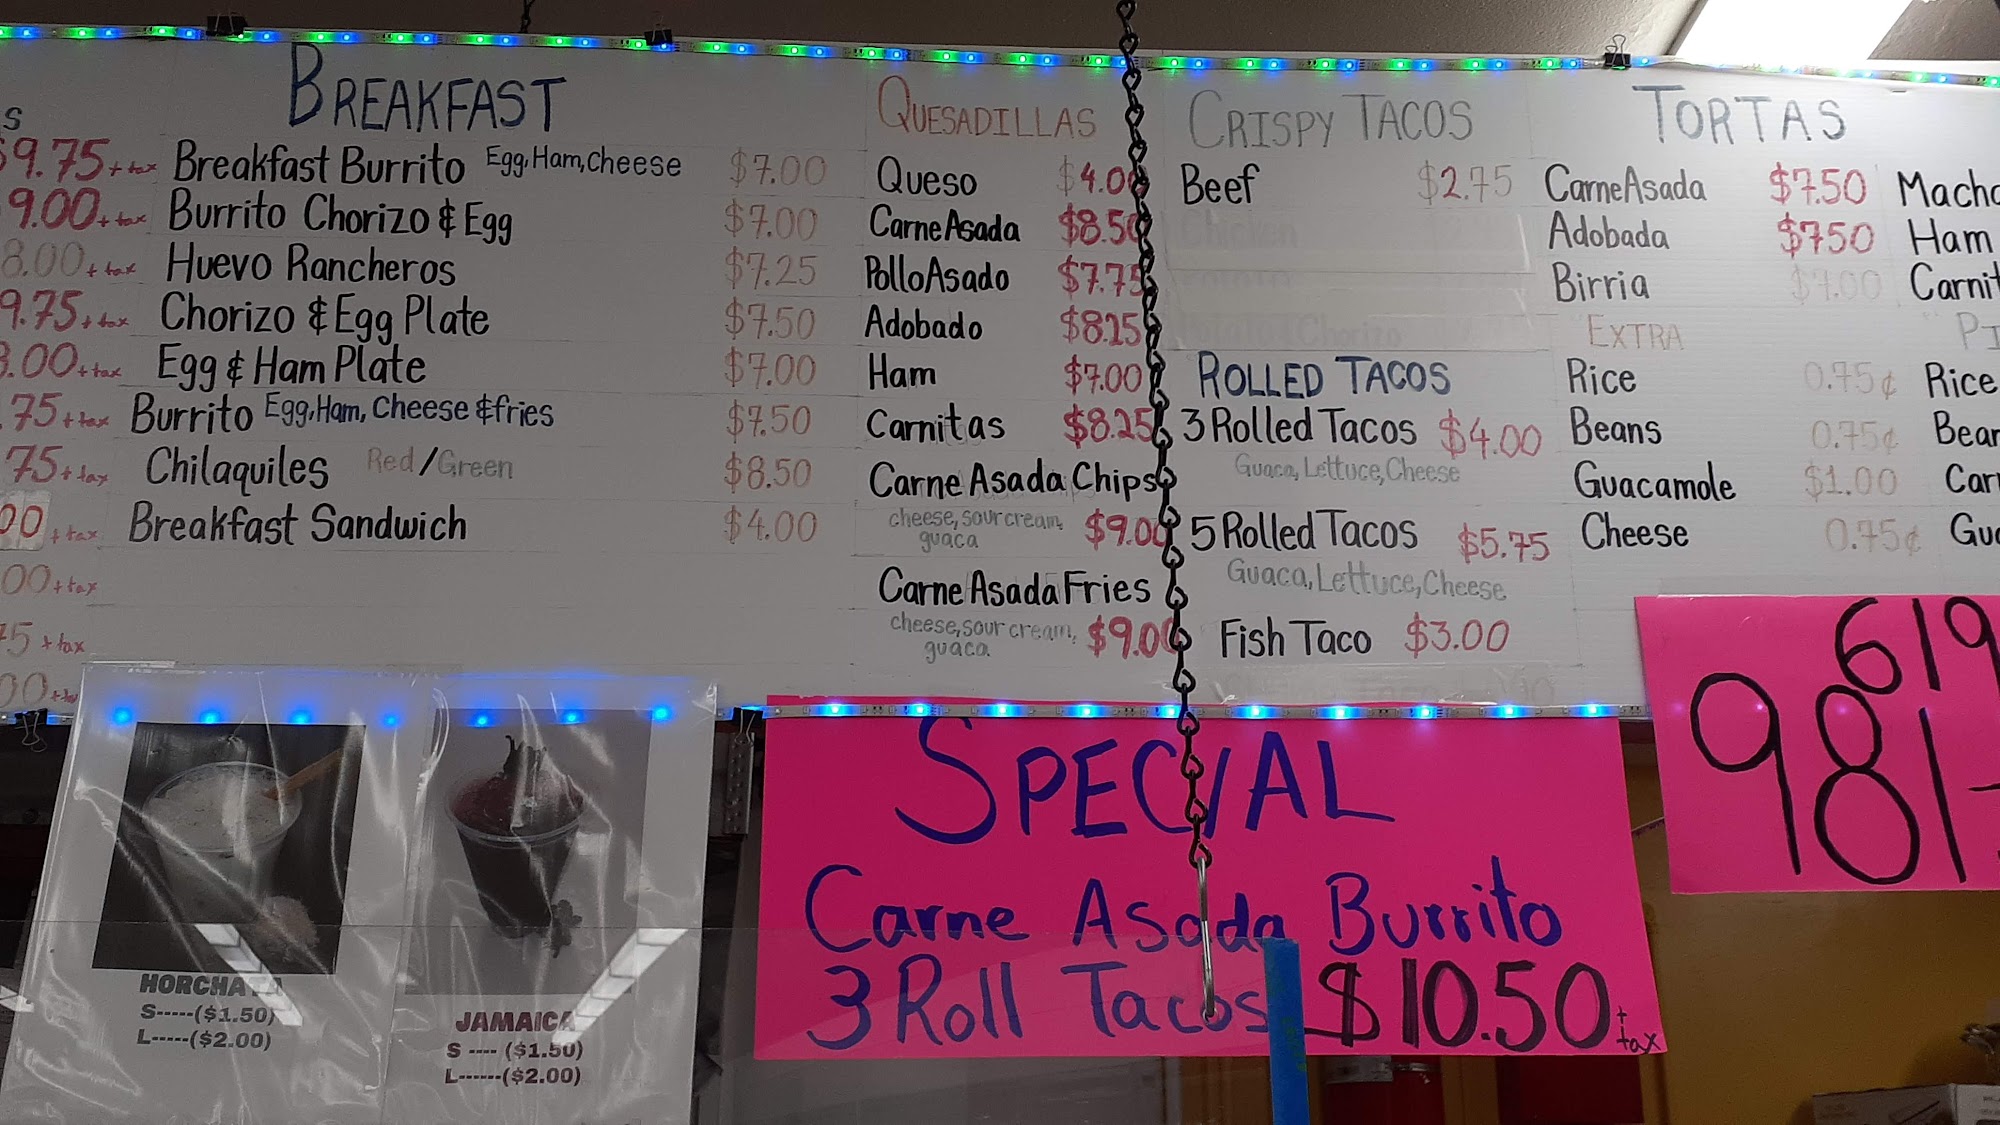 s
$9.75 + tax
9.00 + tax
8.00 + tax
9.75 + tax
.00 + tax
.75 + tax
75 + tax
00 + tax
00 + tax
75 + tax
00 + tax
BREAKFAST
Breakfast Burrito Egg, Ham, Cheese $7.00
Burrito Chorizo & Egg $7.00
Huevo Rancheros $7.25
Chorizo & Egg Plate $7.50
Egg & Ham Plate $7.00
Burrito Egg, Ham, Cheese & fries $7.50
Chilaquiles Red/Green $8.50
Breakfast Sandwich $4.00
QUESADILLAS
Queso $4.00
Carne Asada $8.50
Pollo Asado $7.75
Adobado $8.25
Ham $7.00
Carnitas $8.25
Carne Asada Chips
cheese, sour cream,
guaca $9.00
Carne Asada Fries
cheese, sour cream,
guaca $9.00
CRISPY TACOS
Beef $2.75
Chicken
ROLLED TACOS
3 Rolled Tacos $4.00
Guaca, Lettuce, Cheese
5 Rolled Tacos $5.75
Guaca, Lettuce, Cheese
Fish Taco $3.00
TORTAS
Carne Asada $7.50
Adobada $750
Birria $7.00
EXTRA
Rice 0.75¢
Beans 0.75¢
Guacamole $1.00
Cheese 0.75¢
Macha
Ham
Carnit
PI
Rice
Bean
Car
Gua
619
981-
HORCHATA
S-----($1.50)
L-----($2.00)
JAMAICA
S ---- ($1.50)
L------($2.00)
SPECIAL
Carne Asada Burrito
3 Roll Tacos $10.50 + tax